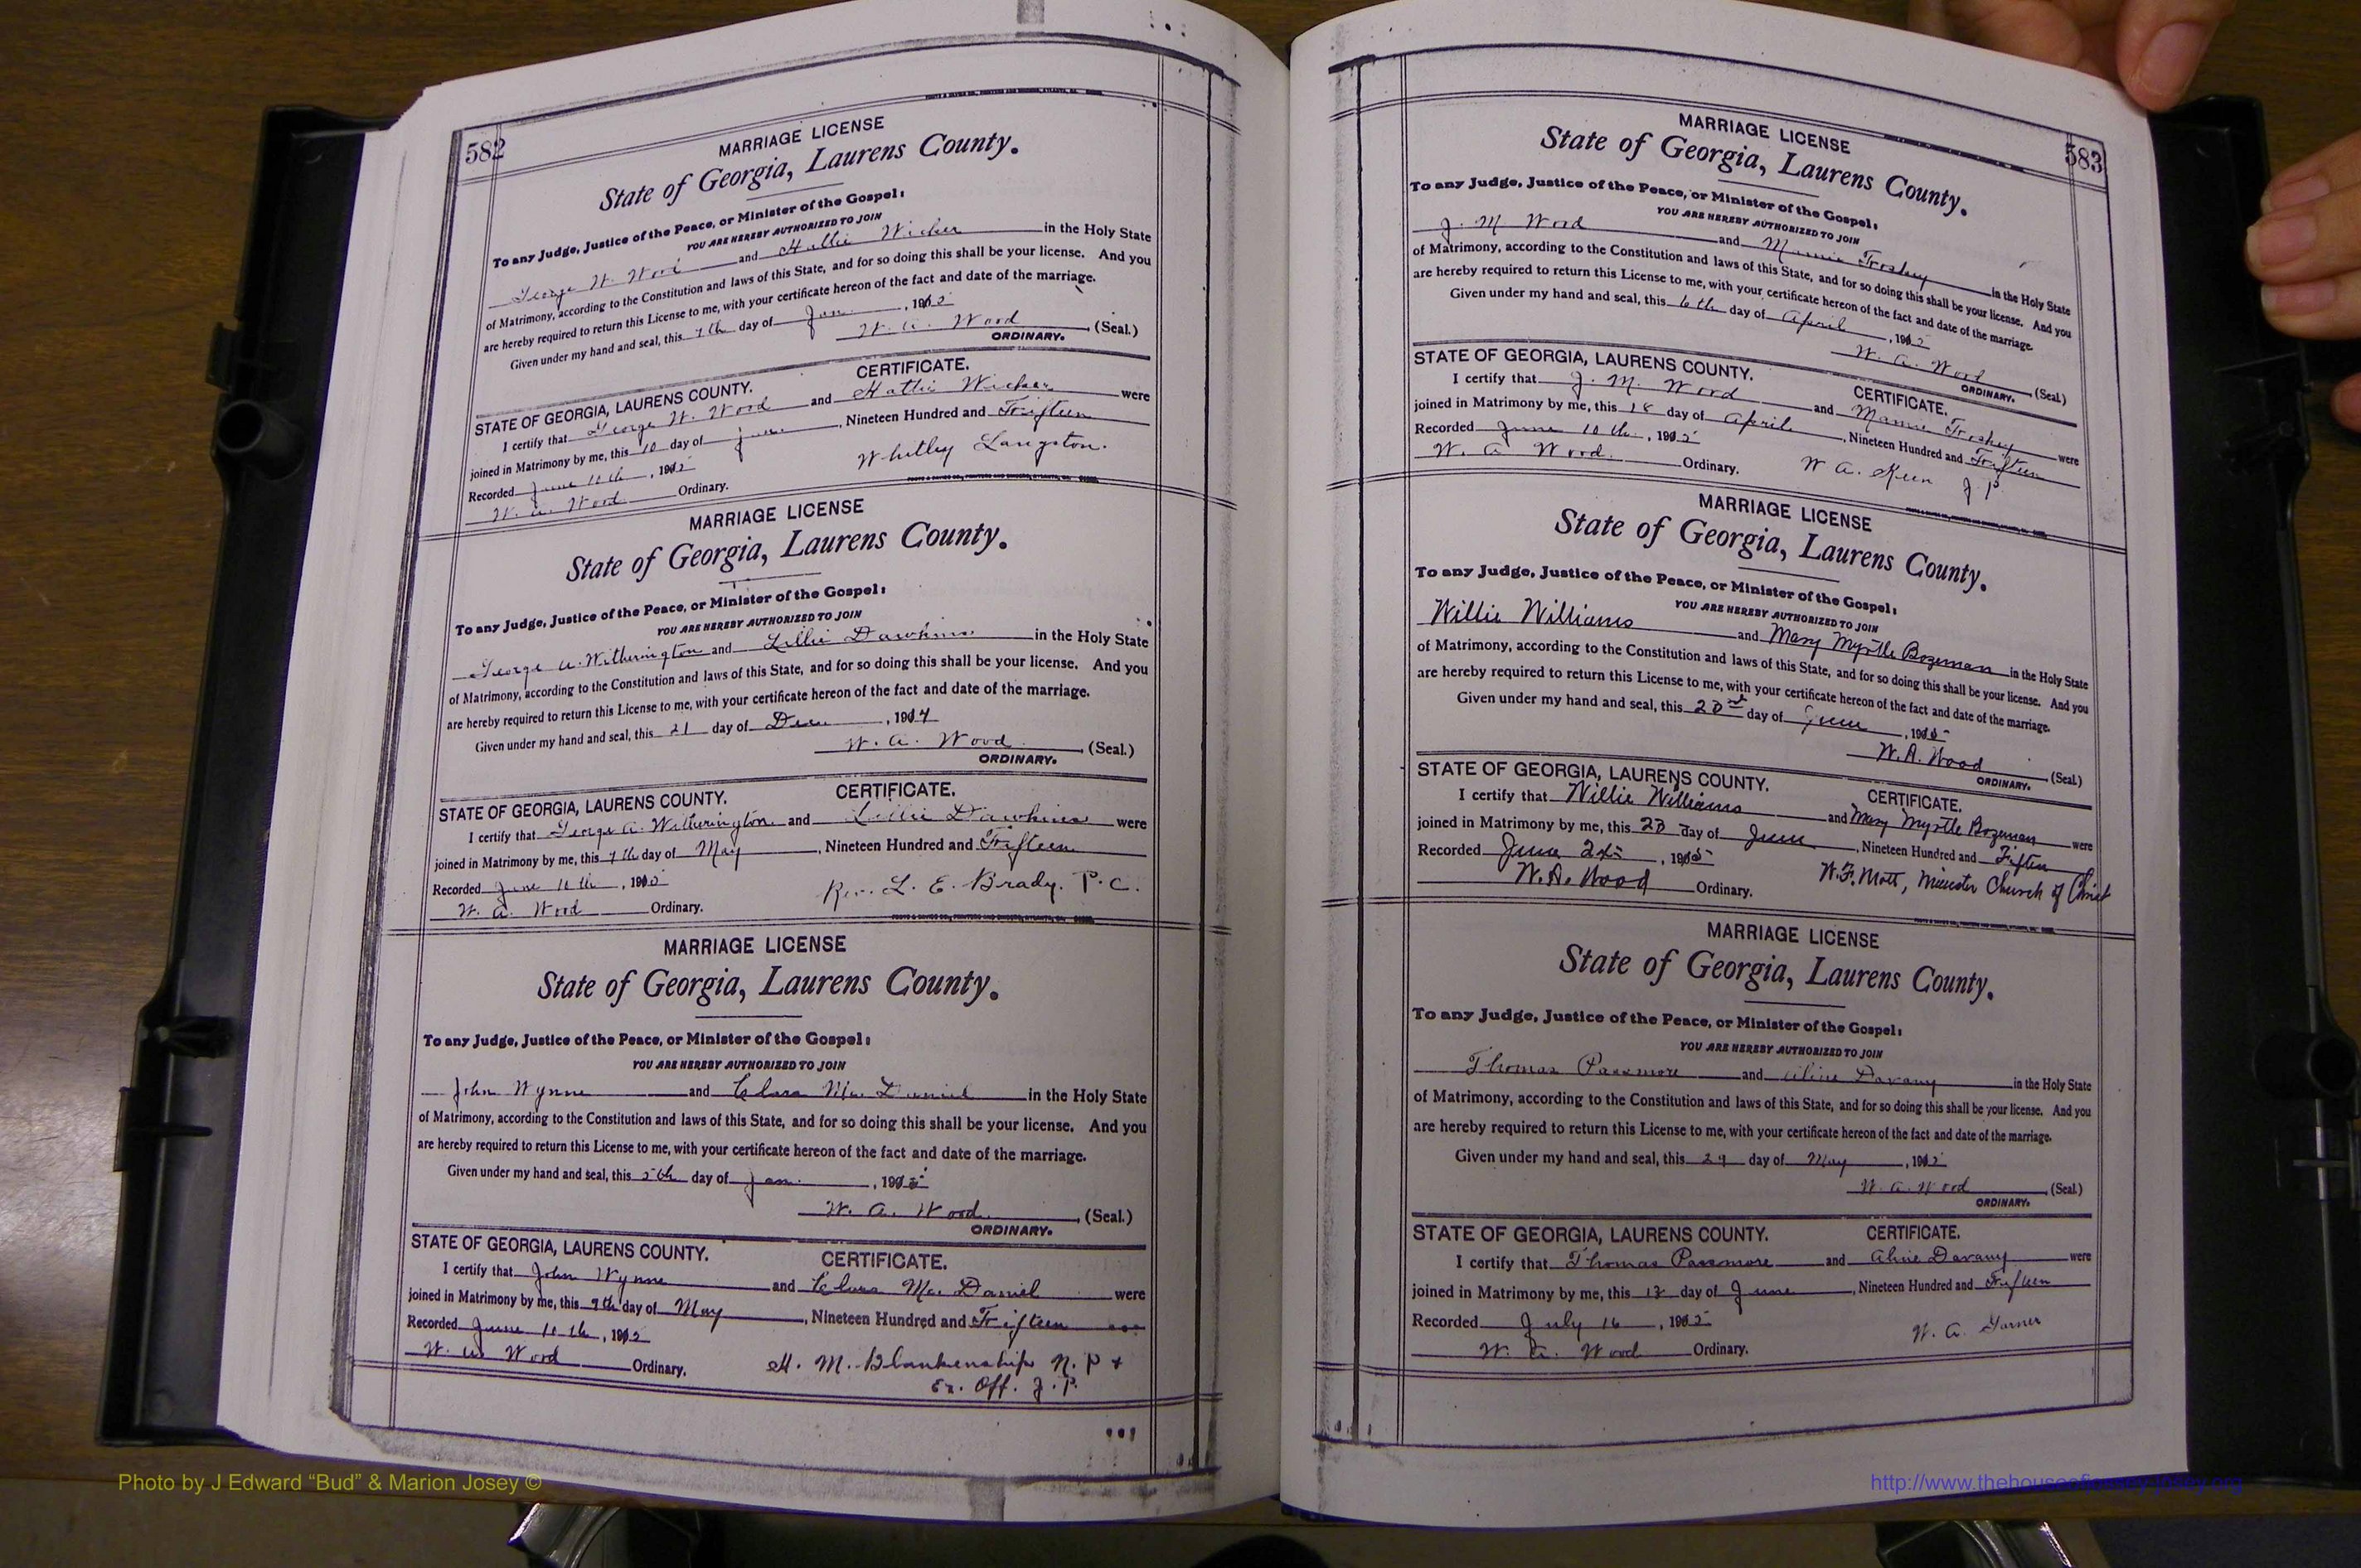 582
MARRIAGE LICENSE
State of Georgia, Laurens County.
To any Judge, Justice of the Peace, or Minister of the Gospel:
YOU ARE HEREBY AUTHORIZED TO JOIN
George W. Wood and Hattie Wicker in the Holy State
of Matrimony, according to the Constitution and laws of this State, and for so doing this shall be your license. And you
are hereby required to return this License to me, with your certificate hereon of the fact and date of the marriage.
Given under my hand and seal, this 7th day of Jan. , 1915
W. A. Wood (Seal.)
ORDINARY.
STATE OF GEORGIA, LAURENS COUNTY. CERTIFICATE.
I certify that George W. Wood and Hattie Wicker were
joined in Matrimony by me, this 10 day of , Nineteen Hundred and Fifteen
Recorded June 10th , 1915 Whitley Langston.
W. A. Wood Ordinary.
MARRIAGE LICENSE
State of Georgia, Laurens County.
To any Judge, Justice of the Peace, or Minister of the Gospel:
YOU ARE HEREBY AUTHORIZED TO JOIN
George A. Witherington and Lillie Dawkins in the Holy State
of Matrimony, according to the Constitution and laws of this State, and for so doing this shall be your license. And you
are hereby required to return this License to me, with your certificate hereon of the fact and date of the marriage.
Given under my hand and seal, this 21 day of Dec. , 1914
W. A. Wood (Seal.)
ORDINARY.
STATE OF GEORGIA, LAURENS COUNTY. CERTIFICATE.
I certify that George A. Witherington and Lillie Dawkins were
joined in Matrimony by me, this 7th day of May , Nineteen Hundred and Fifteen
Recorded June 10th , 1915 Rev. L. E. Brady. P.C.
W. A. Wood Ordinary.
MARRIAGE LICENSE
State of Georgia, Laurens County.
To any Judge, Justice of the Peace, or Minister of the Gospel:
YOU ARE HEREBY AUTHORIZED TO JOIN
John Wynne and Clara Mc. Daniel in the Holy State
of Matrimony, according to the Constitution and laws of this State, and for so doing this shall be your license. And you
are hereby required to return this License to me, with your certificate hereon of the fact and date of the marriage.
Given under my hand and seal, this 5th day of Jan. , 1915
W. A. Wood (Seal.)
ORDINARY.
STATE OF GEORGIA, LAURENS COUNTY. CERTIFICATE.
I certify that John Wynne and Clara Mc. Daniel were
joined in Matrimony by me, this 9th day of May , Nineteen Hundred and Fifteen
Recorded June 10th , 1915
W. A. Wood Ordinary. H. M. Blankenship N. P &
Ex. Off. J. P.
583
MARRIAGE LICENSE
State of Georgia, Laurens County.
To any Judge, Justice of the Peace, or Minister of the Gospel:
YOU ARE HEREBY AUTHORIZED TO JOIN
J. M. Wood and Mamie in the Holy State
of Matrimony, according to the Constitution and laws of this State, and for so doing this shall be your license. And you
are hereby required to return this License to me, with your certificate hereon of the fact and date of the marriage.
Given under my hand and seal, this 6th day of April , 1915
W. A. Wood (Seal.)
ORDINARY.
STATE OF GEORGIA, LAURENS COUNTY. CERTIFICATE.
I certify that J. M. Wood and Mamie were
joined in Matrimony by me, this 18 day of April , Nineteen Hundred and Fifteen
Recorded June 10th , 1915
W. A Wood. Ordinary. W A. Keen J P
MARRIAGE LICENSE
State of Georgia, Laurens County.
To any Judge, Justice of the Peace, or Minister of the Gospel:
YOU ARE HEREBY AUTHORIZED TO JOIN
Willie Williams and Mary Myrtle Bozeman in the Holy State
of Matrimony, according to the Constitution and laws of this State, and for so doing this shall be your license. And you
are hereby required to return this License to me, with your certificate hereon of the fact and date of the marriage.
Given under my hand and seal, this day of June , 1915
W. A. Wood (Seal)
ORDINARY.
STATE OF GEORGIA, LAURENS COUNTY. CERTIFICATE.
I certify that Willie Williams and Mary Myrtle Bozeman were
joined in Matrimony by me, this day of June , Nineteen Hundred and Fifteen
Recorded June , 1915
W. A. Wood Ordinary. W. F. Mott, Minister Church of Christ
MARRIAGE LICENSE
State of Georgia, Laurens County.
To any Judge, Justice of the Peace, or Minister of the Gospel:
YOU ARE HEREBY AUTHORIZED TO JOIN
Thomas Passmore and Aline Davany in the Holy State
of Matrimony, according to the Constitution and laws of this State, and for so doing this shall be your license. And you
are hereby required to return this License to me, with your certificate hereon of the fact and date of the marriage.
Given under my hand and seal, this 29 day of May , 1915
W. A. Wood (Seal.)
ORDINARY.
STATE OF GEORGIA, LAURENS COUNTY. CERTIFICATE.
I certify that Thomas Passmore and Aline Davany were
joined in Matrimony by me, this 13 day of June , Nineteen Hundred and Fifteen
Recorded July 16 , 1915 W. A.
W. A. Wood Ordinary.
Photo by J Edward “Bud” & Marion Josey ©